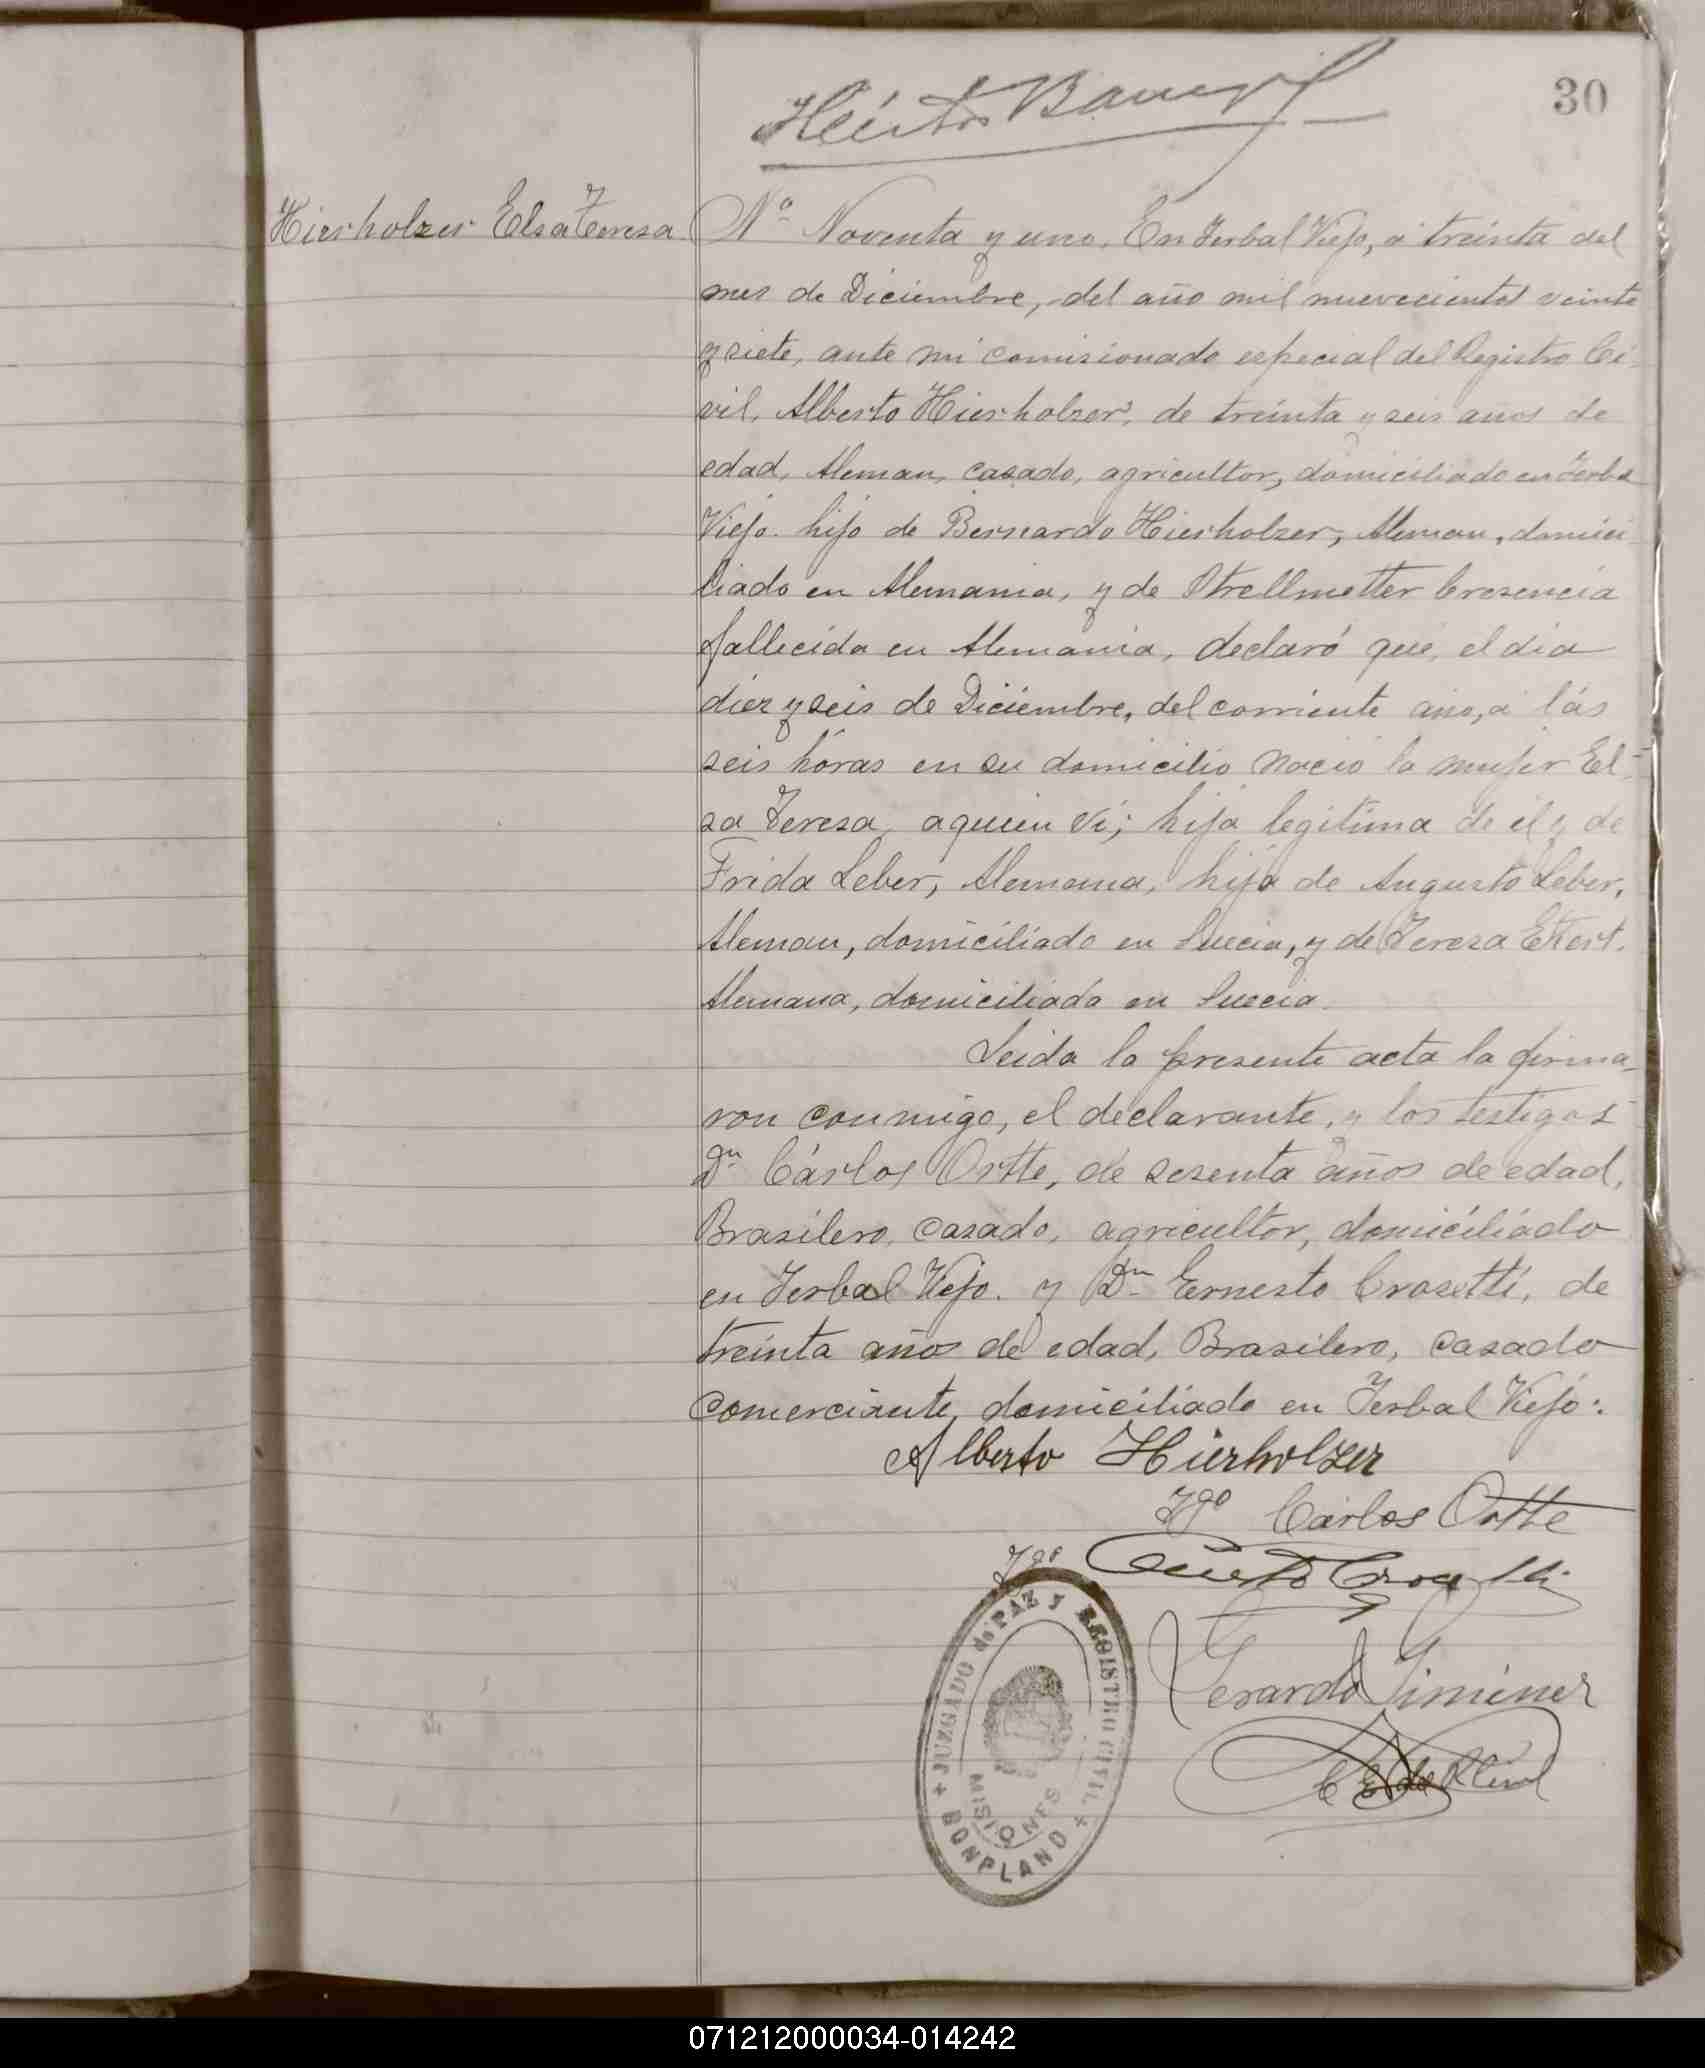 30
Héctor
Hierholzer Elsa Teresa
Nº Noventa y uno. En Yerbal Viejo, á treinta del
mes de Diciembre, del año mil nuevecientos veinte
y siete, ante mi comisionado especial del Registro Ci-
vil, Alberto Hierholzer, de treinta y seis años de
edad, Aleman, casado, agricultor, domiciliado en Yerbal
Viejo. hijo de Bernardo Hierholzer, Aleman, domici-
liado en Alemania, y de Strellmetter Cresencia
fallecida en Alemania, declaró que, el dia
diez y seis de Diciembre, del corriente año, á lás
seis hóras en su domicilio nació la mujer El-
sa Teresa, a quien ví; hija legitima de él y de
Frida Leber, Alemana, hija de Augusto Leber,
Aleman, domiciliado en Suecia, y de Teresa Ekert.
Alemana, domiciliada en Suecia.
Leida la presente acta la firma-
ron conmigo, el declarante, y los testigos
Dn Cárlos Ortte, de sesenta años de edad,
Brasilero, casado, agricultor, domiciliado
en Yerbal Viejo. y Dn Ernesto Crosetti, de
treinta años de edad, Brasilero, casado
comerciante, domiciliado en Yerbal Viejo:
Alberto Hierholzer
Tgo Cárlos Ortte
Tgo Ernesto Crosetti
Gerardo Giménez
JUZGADO de PAZ y REGISTRO CIVIL
MISIONES
+ BONPLAND +
071212000034-014242